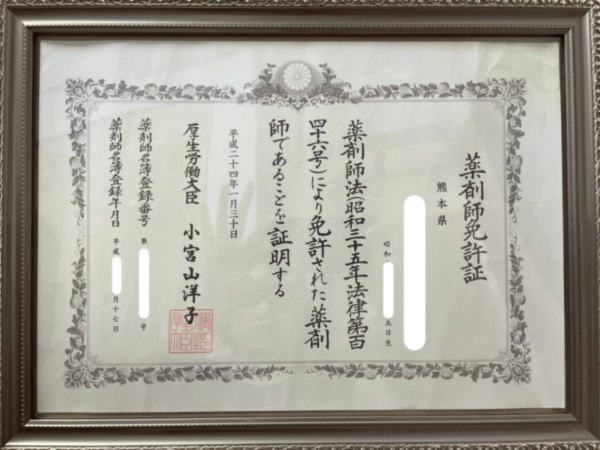 薬剤師免許証
熊本県
昭和
五日生
薬剤師法(昭和三十五年法律第百
四十六号)により免許された薬剤
師であることを証明する
平成二十四年一月三十日
厚生労働大臣 小宮山洋子
薬剤師名簿登録番号 第 号
薬剤師名簿登録年月日 平成 月十七日